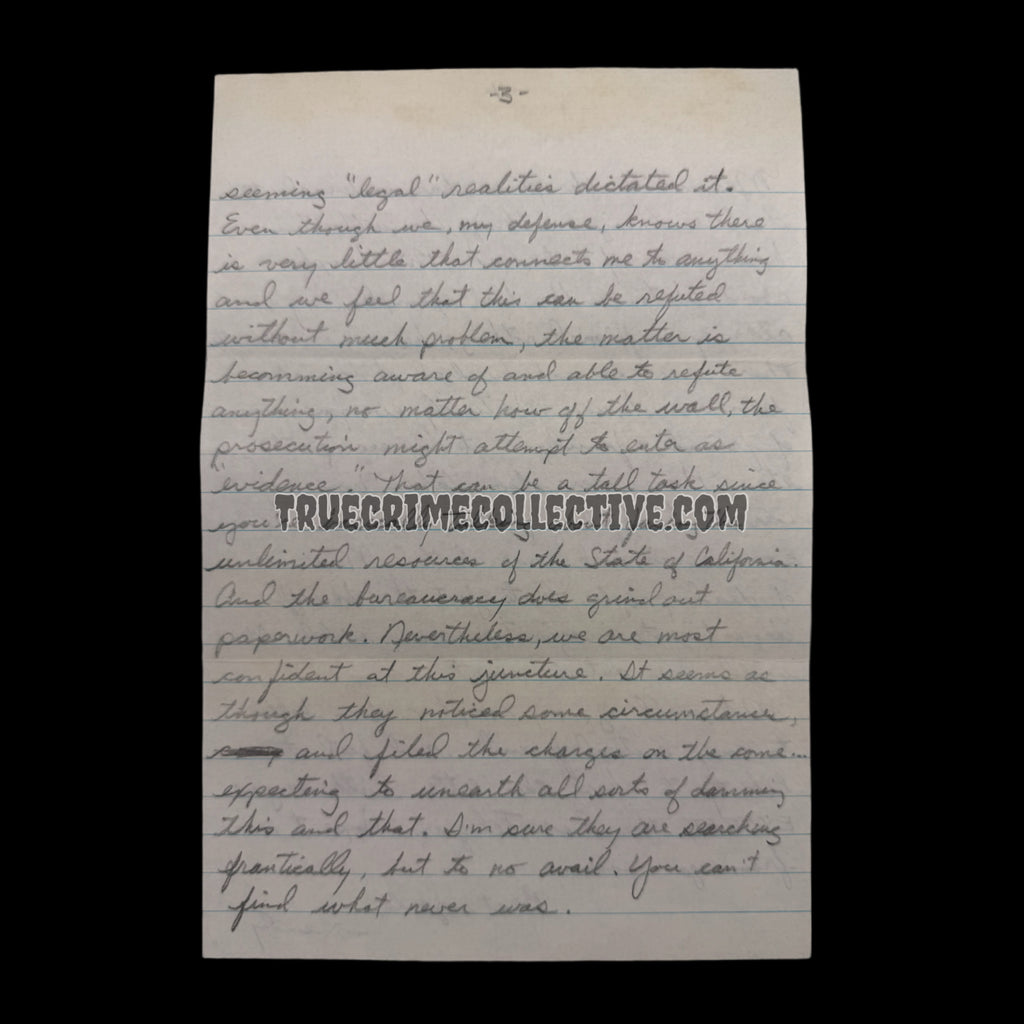 -3-
seeming "legal" realities dictated it.
Even though we, my defense, knows there
is very little that connects me to anything
and we feel that this can be refuted
without much problem, the matter is
becomming aware of and able to refute
anything, no matter how off the wall, the
prosecution might attempt to enter as
"evidence." That can be a tall task since
TRUECRIMECOLLECTIVE.COM
unlimited resources of the State of California.
And the bureaucracy does grind out
paperwork. Nevertheless, we are most
confident at this juncture. It seems as
though they noticed some circumstances,
and filed the charges on the come...
expecting to unearth all sorts of damming
this and that. I'm sure they are searching
frantically, but to no avail. You can't
find what never was.